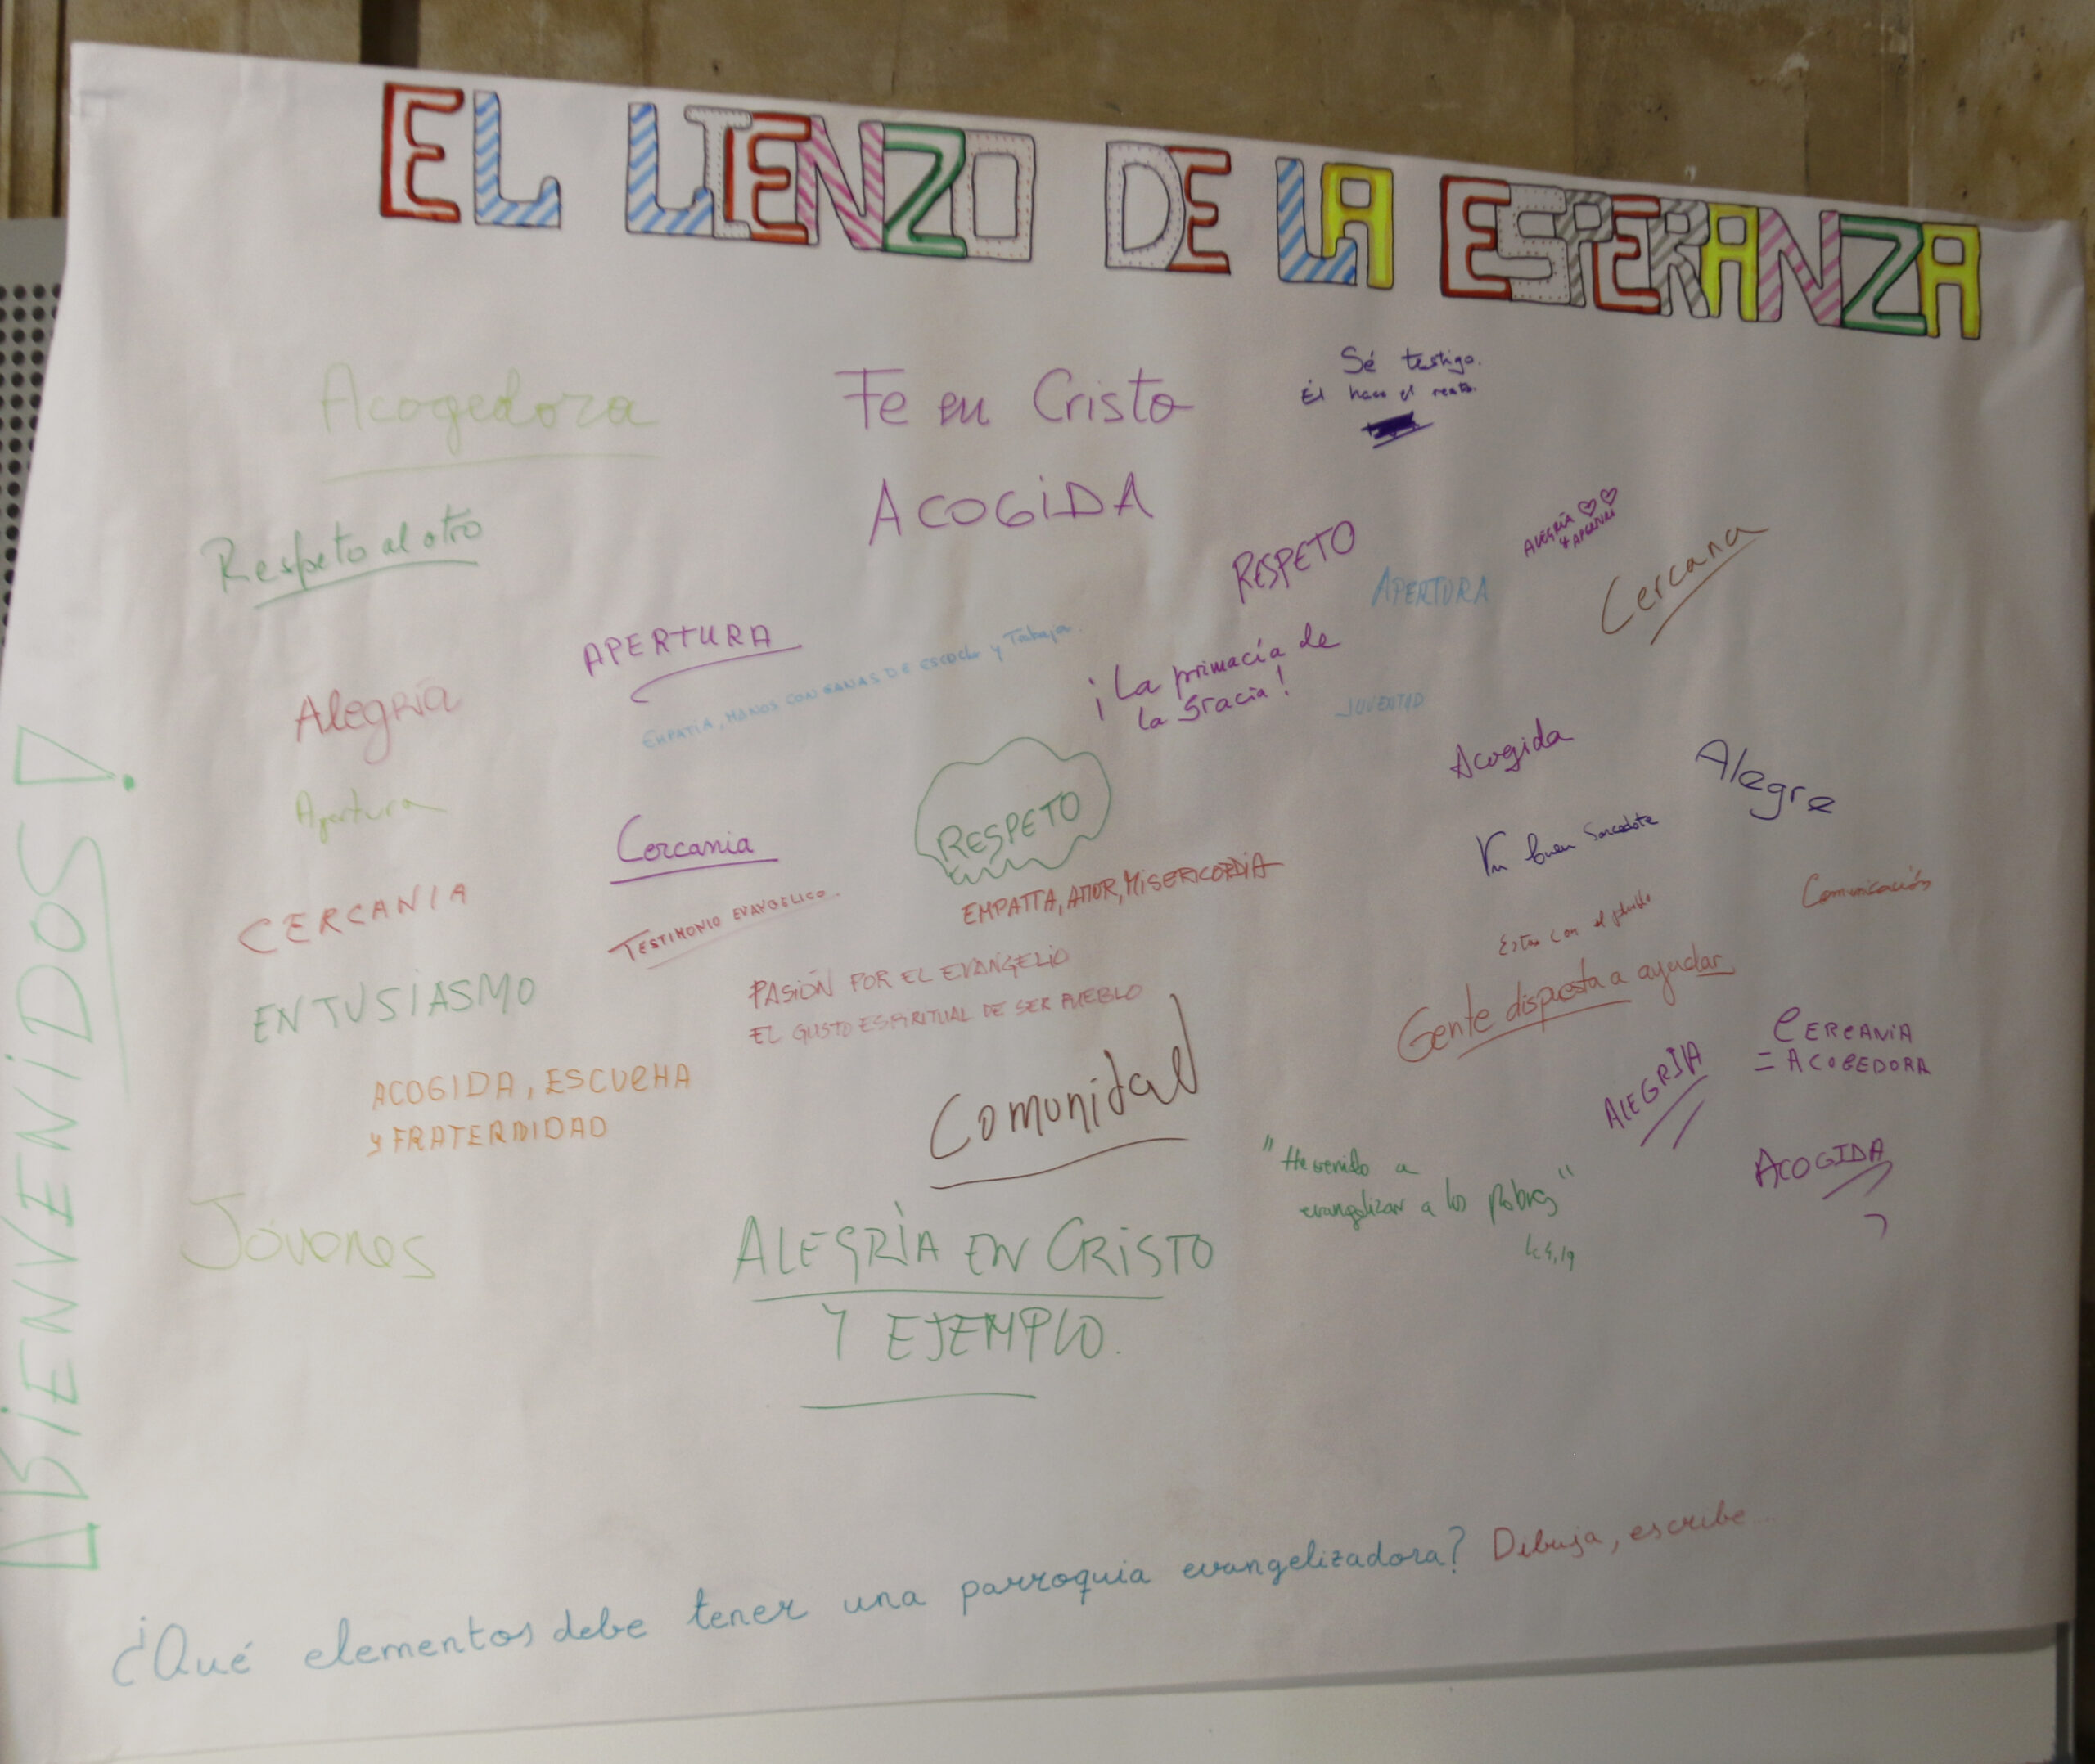 EL LIENZO DE LA ESPERANZA
¡BIENVENIDOS!
Acogedora
Fe en Cristo
Sé testigo.
Él hace el resto.
ACOGIDA
Respeto al otro
RESPETO
ALEGRÍA
Y APERTURA
APERTURA
Cercana
APERTURA
EMPATIA, MANOS CON GANAS DE escuchar y Trabajar.
¡La primacía de
la Gracia!
JUVENTUD
Alegría
Acogida
Alegre
Apertura
Cercania
RESPETO
Un buen Sacerdote
CERCANIA
TESTIMONIO EVANGELICO.
EMPATIA, AMOR, MISERICORDIA
Comunicación
Estar con el
PASIÓN POR EL EVANGELIO
EL GUSTO ESPIRITUAL DE SER PUEBLO
Gente dispuesta a ayudar
ENTUSIASMO
CERCANIA
= ACOGEDORA
ALEGRIA
ACOGIDA, ESCUCHA
Y FRATERNIDAD
Comunidad
"He venido a
evangelizar a los pobres"
Lc 4,19
ACOGIDA
Jóvenes
ALEGRÌA EN CRISTO
Y EJEMPLO.
¿Qué elementos debe tener una parroquia evangelizadora? Dibuja, escribe...